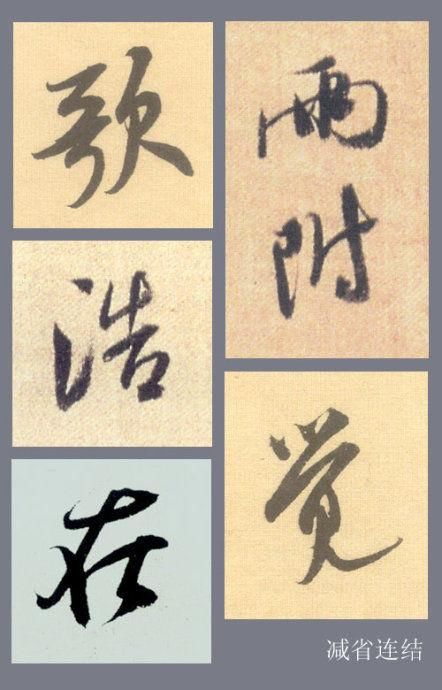 歌
浩
在
雨
附
觉
减省连结